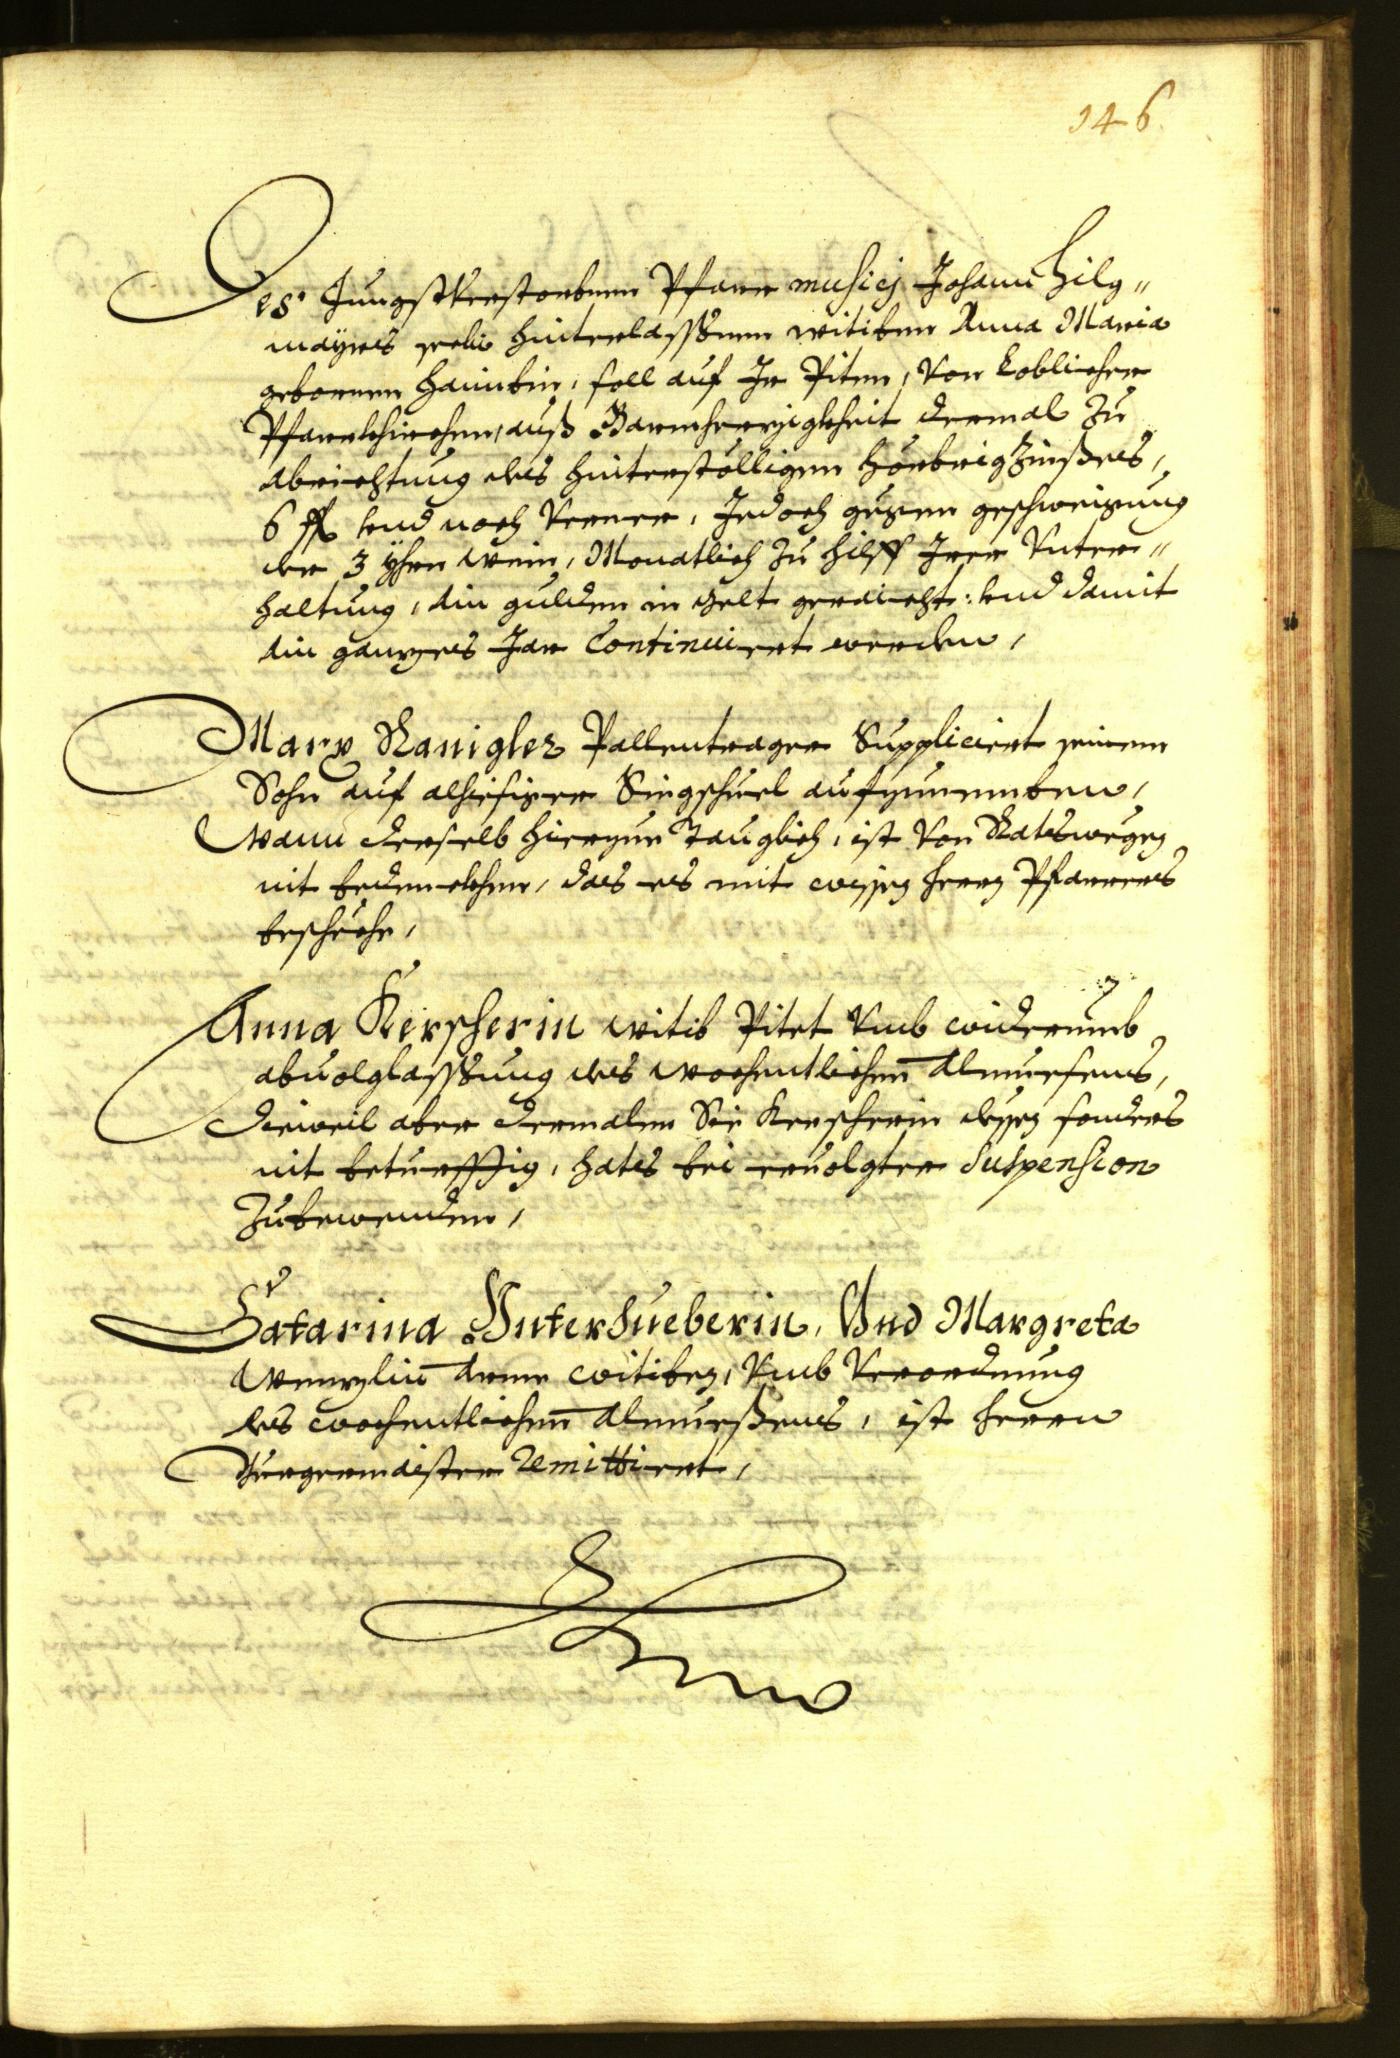 146
Des Jungstverstorbnen Pfarr musici Johann Hilg"
mayrs selig hinterlassßnen witiben Anna Maria
gebornen Haimbin, soll auf Ir Piten, von loblicher
Pfarrkhirchen, auß Barmherzigkheit dermal zu
abrichtung des hinterstölligen Hörbrigzinßes,
6 fl vnd noch verrer, Jedoch gegen geschweigung
der 3 Yhrn Wein, Monatlich zu hilff Irer Vnter"
haltung, ain gulden in gelt geraicht: vnd damit
ain ganzes Jar Continuiert werden,
Marx Ranigler Pallentrager Suppliciert seinen
Sohn auf alhiesiger Singschuel aufzunemben,
Wann derselb hierzue Tauglich, ist von Ratswegen
nit bedenckhen, das es mit wissen Herrn Pfarrers
beschehe,
Anna Kerscherin witib Pitet vmb widerumb
abuolglassßung des wochentlichen Almuesens,
Dieweil aber dermalen Sie Kerscherin dessen sonders
nit betürfftig, hats bei eruolgter Suspension
Zubewenden,
Catarina Unterhueberin, Und Margreta
Wenzlin Arme witiben, vmb verordnung
des wochentlichen Almueßens, ist Herrn
Burgermaister Remittiert,